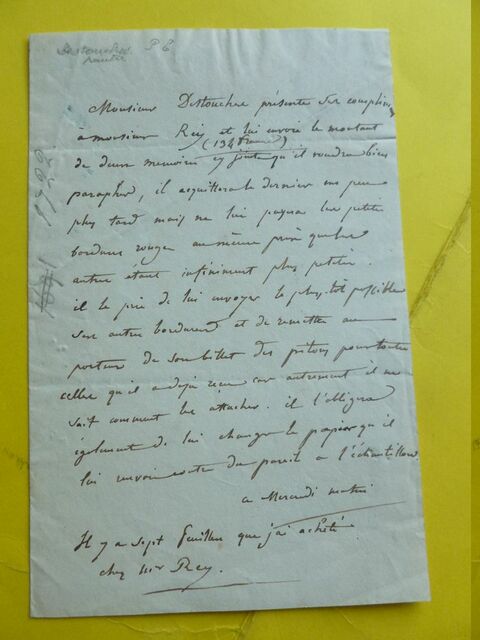 Destouches
peintre
P E
Monsieur Destouches présente ses complimens
à monsieur Rey et lui envoie le montant
(134 francs)
de deux memoires cy joints qu'il voudra bien
parapher, il acquittera le dernier un peu
plus tard mais ne lui payera la petite
bordure rouge au même prix que les
autres étant infiniment plus petite.
il le prie de lui envoyer le plus tôt possible
ses autres bordures et de remettre au
porteur de son billet des pitons pour toutes
celles qu'il a deja reçu car autrement il ne
sait comment les attacher. il l'obligera
également de lui changer le papier qu'il
lui renvoie contre du pareil à l'échantillon
ce Mercredi matin
Il y a sept feuilles que j'ai acheté
chez Mr Rey.